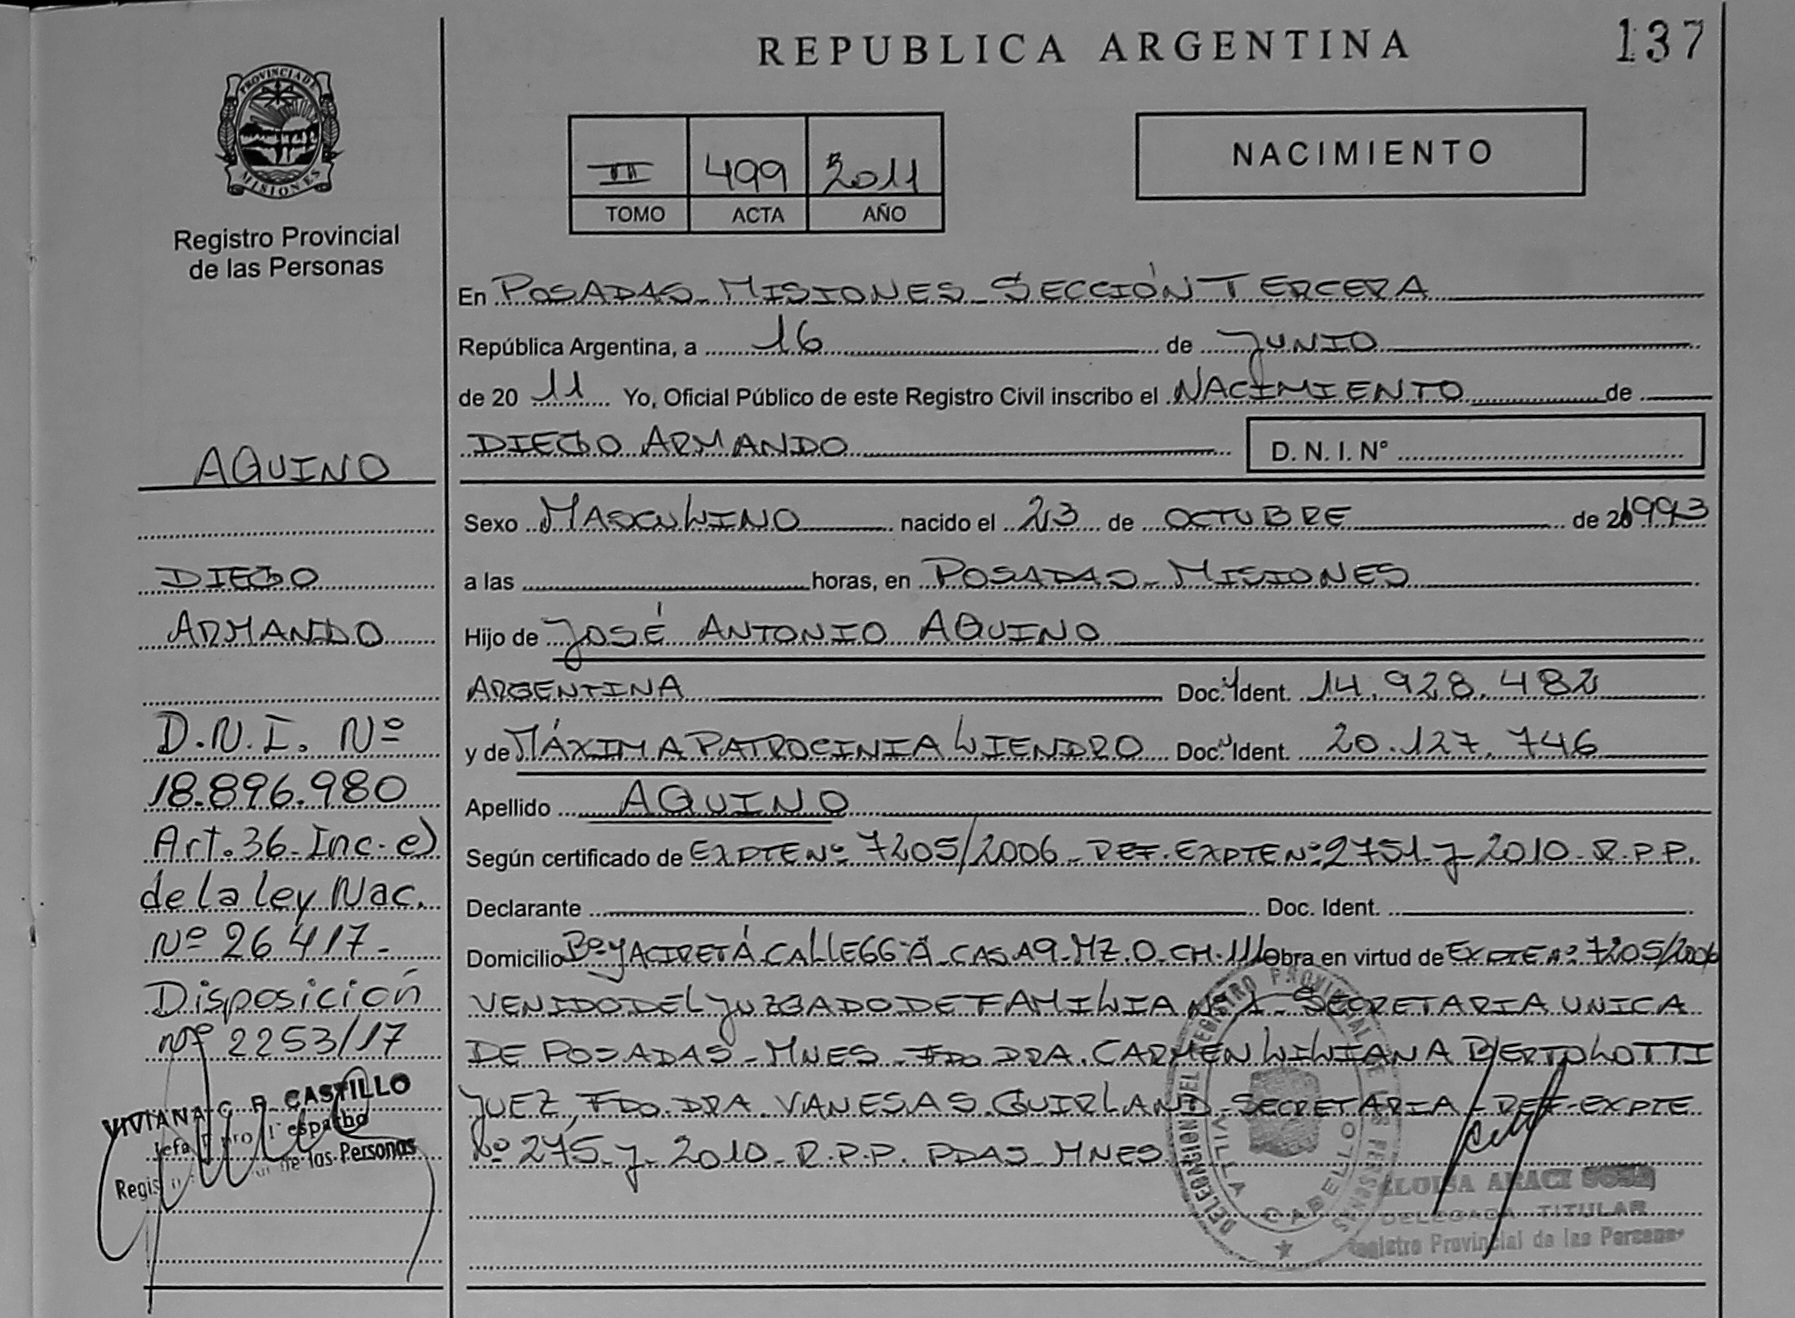 REPUBLICA ARGENTINA
137
PROVINCIA DE MISIONES
Registro Provincial
de las Personas
III 499 2011
TOMO ACTA AÑO
NACIMIENTO
En POSADAS - MISIONES - SECCIÓN TERCERA
República Argentina, a 16 de JUNIO
de 20 11 Yo, Oficial Público de este Registro Civil inscribo el NACIMIENTO de
DIEGO ARMANDO D. N. I. Nº
Sexo MASCULINO nacido el 23 de OCTUBRE de 1993
a las horas, en POSADAS - MISIONES
Hijo de JOSÉ ANTONIO AQUINO
ARGENTINA Doc. Ident. 14.928.482
y de MÁXIMA PATROCINIA LIENDRO Doc. Ident. 20.127.746
Apellido AQUINO
Según certificado de EXPTE Nº 7205/2006 - REF. EXPTE Nº 2751-J-2010-R.P.P.
Declarante Doc. Ident.
Domicilio Bº YACIRETÁ CALLE 66 A CASA 9-MZ.O-CH.111 obra en virtud de EXPTE Nº 7205/2006
VENIDO DEL JUZGADO DE FAMILIA Nº 1 - SECRETARIA UNICA
DE POSADAS - MNES - FDO DRA. CARMEN LILIANA BERTOLOTTI
JUEZ, FDO. DRA. VANESA S. GUIRLAND - SECRETARIA - REF - EXPTE
Nº 275-J-2010-R.P.P. PDAS - MNES
AQUINO
DIEGO
ARMANDO
D.N.I. Nº
18.896.980
Art. 36 - Inc. e)
de la ley Nac.
Nº 26.417-
Disposición
nº 2253/17
VIVIANA C. R. CASTILLO
Jefa Dpto. Despacho
de las Personas
DELEGACION DEL REGISTRO PROVINCIAL DE LAS PERSONAS
VILLA CABELLO
ELOISA ARACI SOSA
DELEGADA TITULAR
Registro Provincial de las Personas